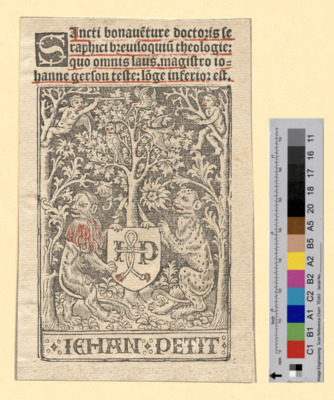 Sancti bonauēture doctoris se
raphici breuiloquiū theologie:
quo omnis laus, magistro io-
hanne gerson teste: lōge inferior est.
IP
IEHAN PETIT
11
10
16
17
18
20
A5
B5
A2
B2
C2
A1
B1
C1